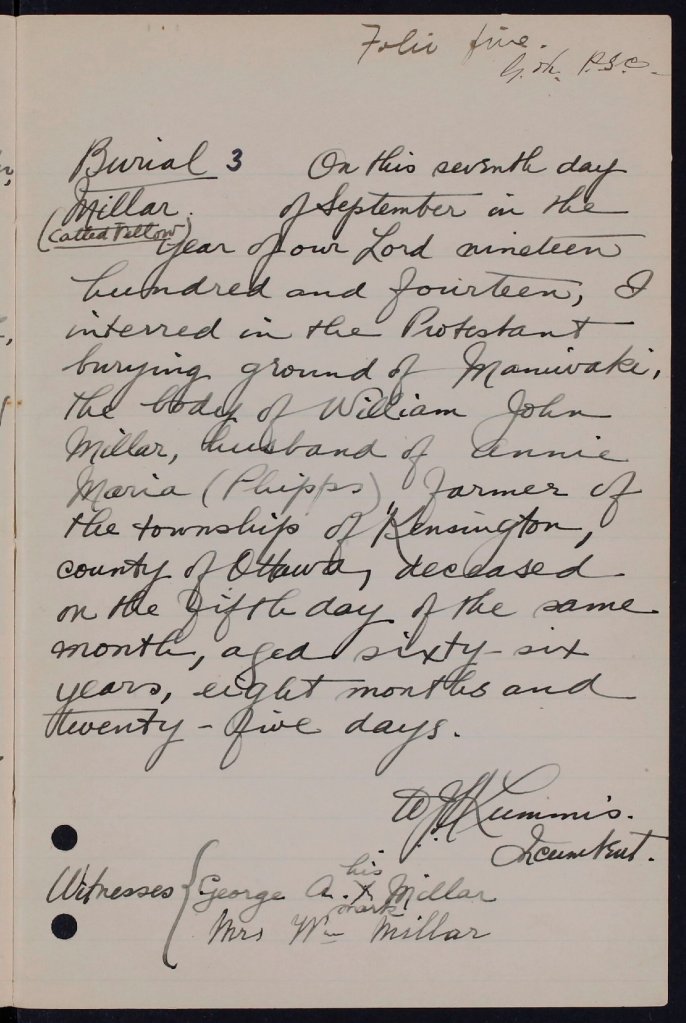 Folio five.
G. P.S.C.
Burial 3 On this seventh day
Millar. of September in the
(Called Fellow) year of our Lord nineteen
hundred and fourteen, I
interred in the Protestant
burying ground of Maniwaki,
the body of William John
Millar, husband of Annie
Maria (Phipps) farmer of
the township of Kensington,
county of Ottawa, deceased
on the fifth day of the same
month, aged sixty-six
years, eight months and
twenty-five days.
Incumbent.
Witnesses { George A. his X mark Millar
Mrs Wm Millar